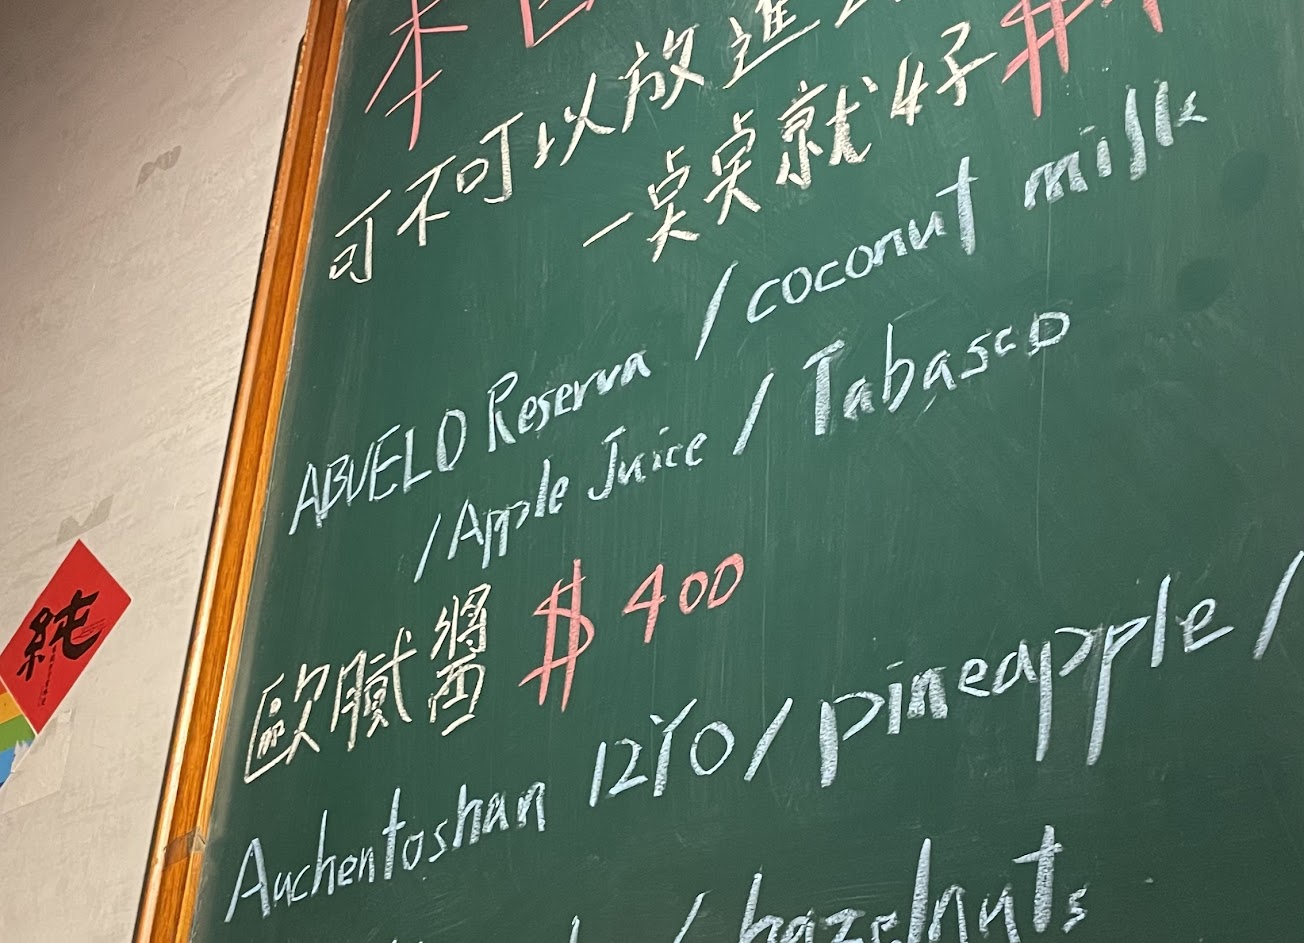 本
可不可以放進
一點點就好 $4
ABUELO Reserva / coconut milk
/ Apple Juice / Tabasco
歐膩醬 $400
Auchentoshan 12YO / pineapple /
/ hazelnuts
純